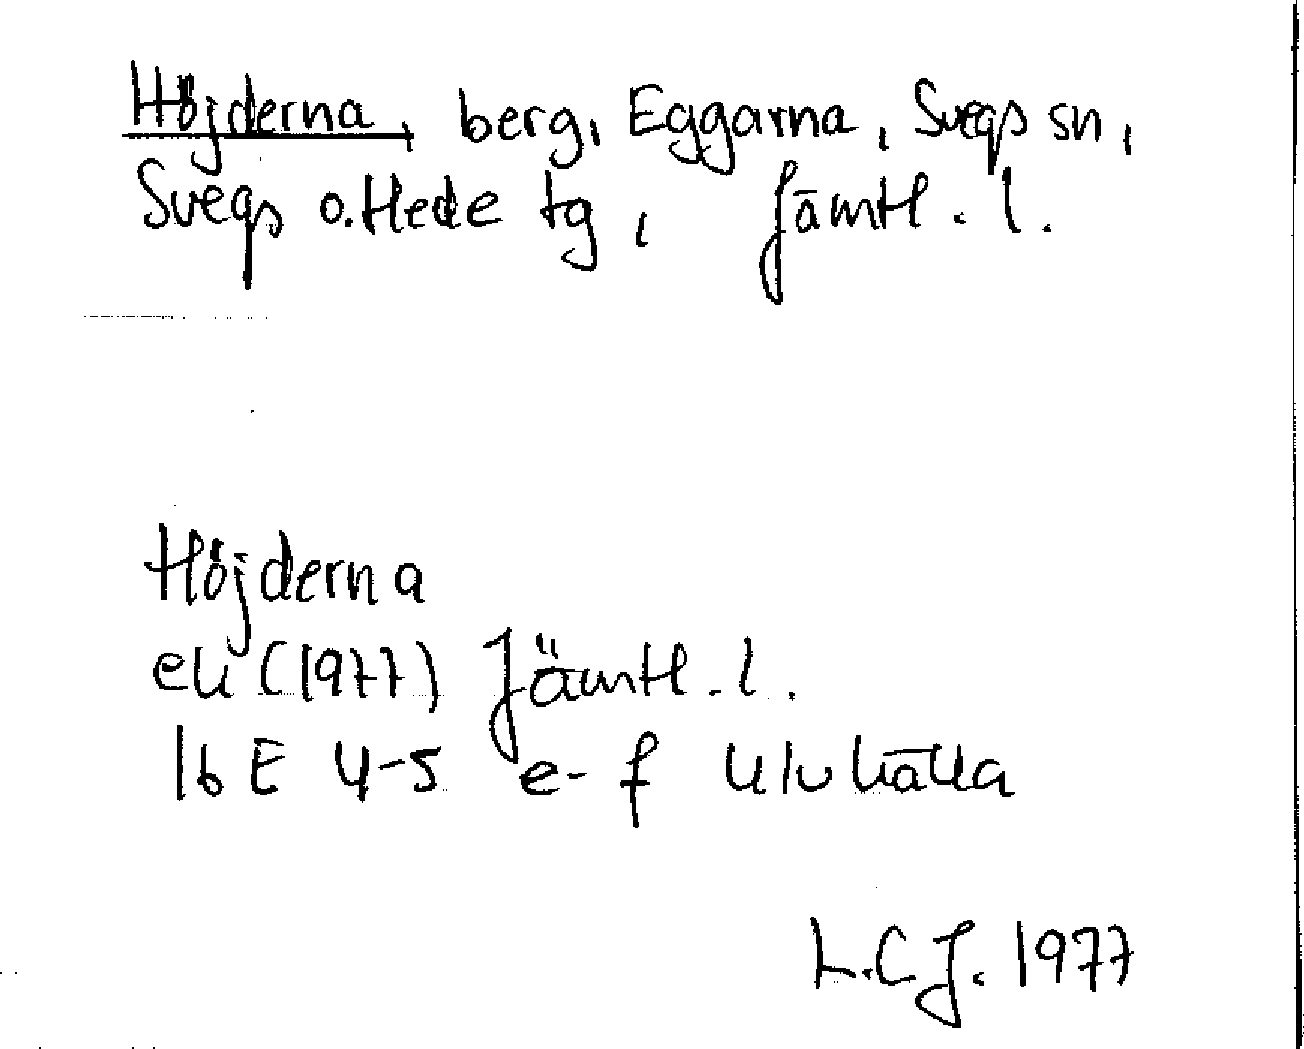 Höjderna, berg, Eggarna, Svegs sn,
Svegs o. Hede tg, Jämtl. l.
Höjderna
ek (1977) Jämtl. l.
16 E 4-5 e-f Ulvkälla
L.C J. 1977